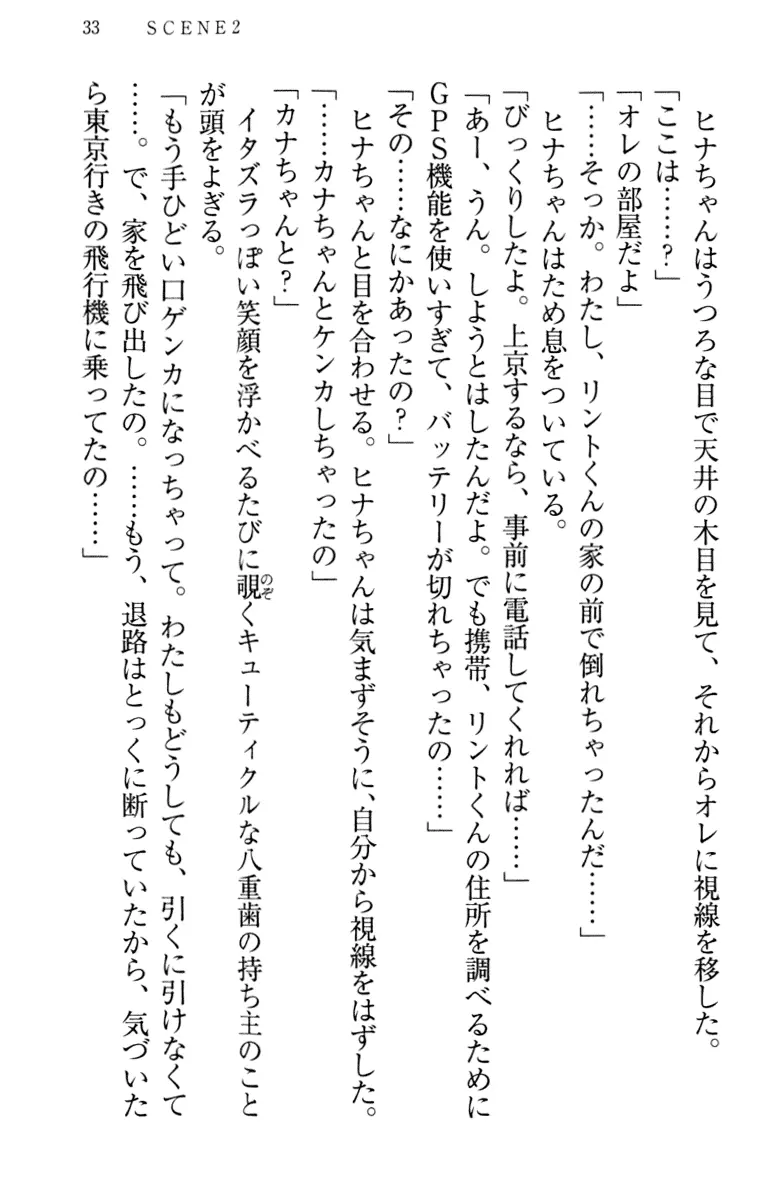 33 SCENE2
ヒナちゃんはうつろな目で天井の木目を見て、それからオレに視線を移した。
「ここは……?」
「オレの部屋だよ」
「……そっか。わたし、リントくんの家の前で倒れちゃったんだ……」
ヒナちゃんはため息をついている。
「びっくりしたよ。上京するなら、事前に電話してくれれば……」
「あー、うん。しようとはしたんだよ。でも携帯、リントくんの住所を調べるために
GPS機能を使いすぎて、バッテリーが切れちゃったの……」
「その……なにかあったの?」
ヒナちゃんと目を合わせる。ヒナちゃんは気まずそうに、自分から視線をはずした。
「……カナちゃんとケンカしちゃったの」
「カナちゃんと?」
イタズラっぽい笑顔を浮かべるたびに覗のぞくキューティクルな八重歯の持ち主のこと
が頭をよぎる。
「もう手ひどい口ゲンカになっちゃって。わたしもどうしても、引くに引けなくて
……。で、家を飛び出したの。……もう、退路はとっくに断っていたから、気づいた
ら東京行きの飛行機に乗ってたの……」